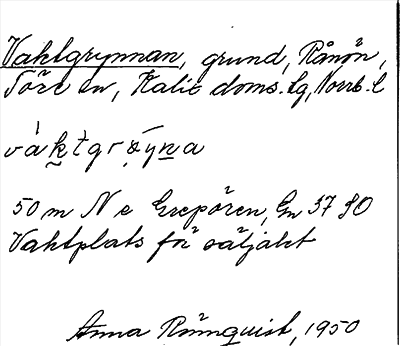 Vaktgrynnan, grund, Rånön,
Töre sn, Kalix doms. lg, Norrb. l
50 m N e Grepören, Gn 37 SO
Vaktplats för säljakt
Anna Rönnquist, 1950